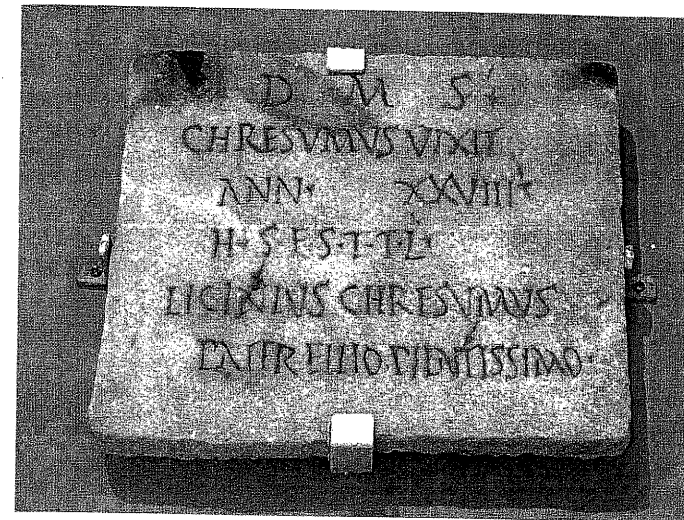 D M S
CHRESVMVS VIXIT
ANN· XXVIII·
H·S·E·S·T·T·L·
LICINIVS CHRESVMVS
PATER FILIO PIENTISSIMO·